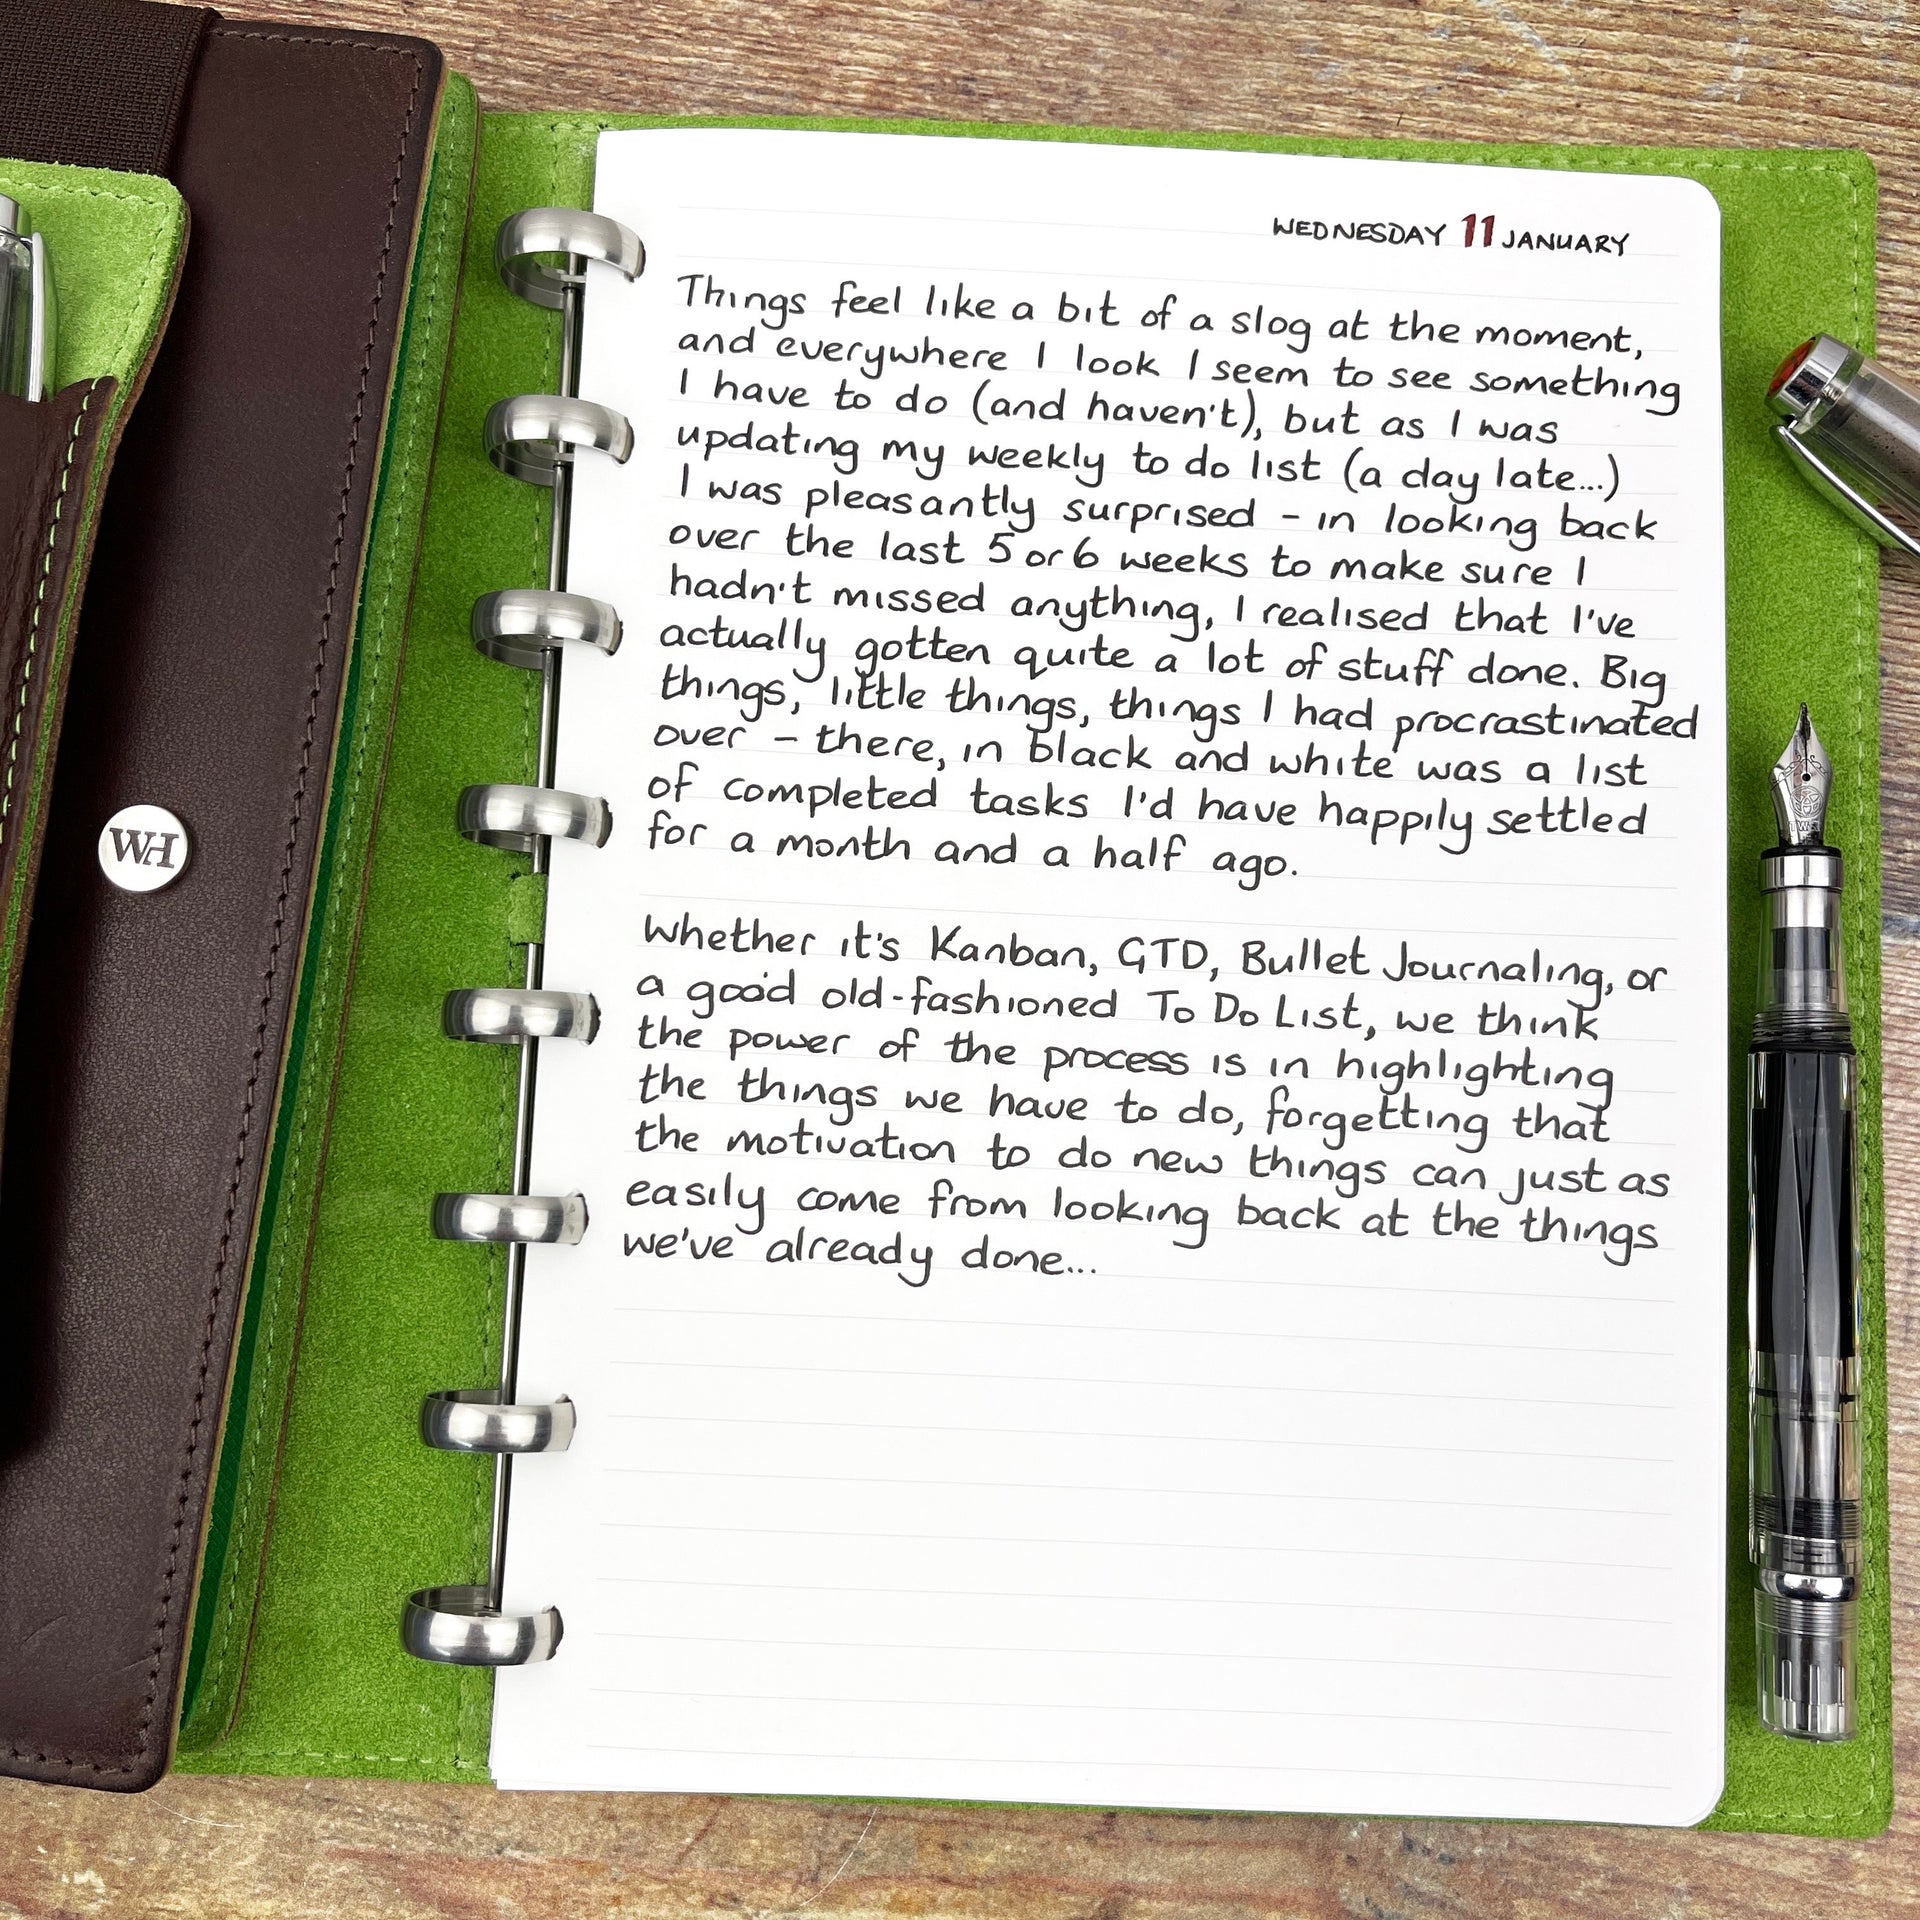 WEDNESDAY 11 JANUARY
Things feel like a bit of a slog at the moment,
and everywhere I look I seem to see something
I have to do (and haven't), but as I was
updating my weekly to do list (a day late...)
I was pleasantly surprised – in looking back
over the last 5 or 6 weeks to make sure I
hadn't missed anything, I realised that I've
actually gotten quite a lot of stuff done. Big
things, little things, things I had procrastinated
over – there, in black and white was a list
of completed tasks I'd have happily settled
for a month and a half ago.
Whether it's Kanban, GTD, Bullet Journaling, or
a good old-fashioned To Do List, we think
the power of the process is in highlighting
the things we have to do, forgetting that
the motivation to do new things can just as
easily come from looking back at the things
we've already done...
WH